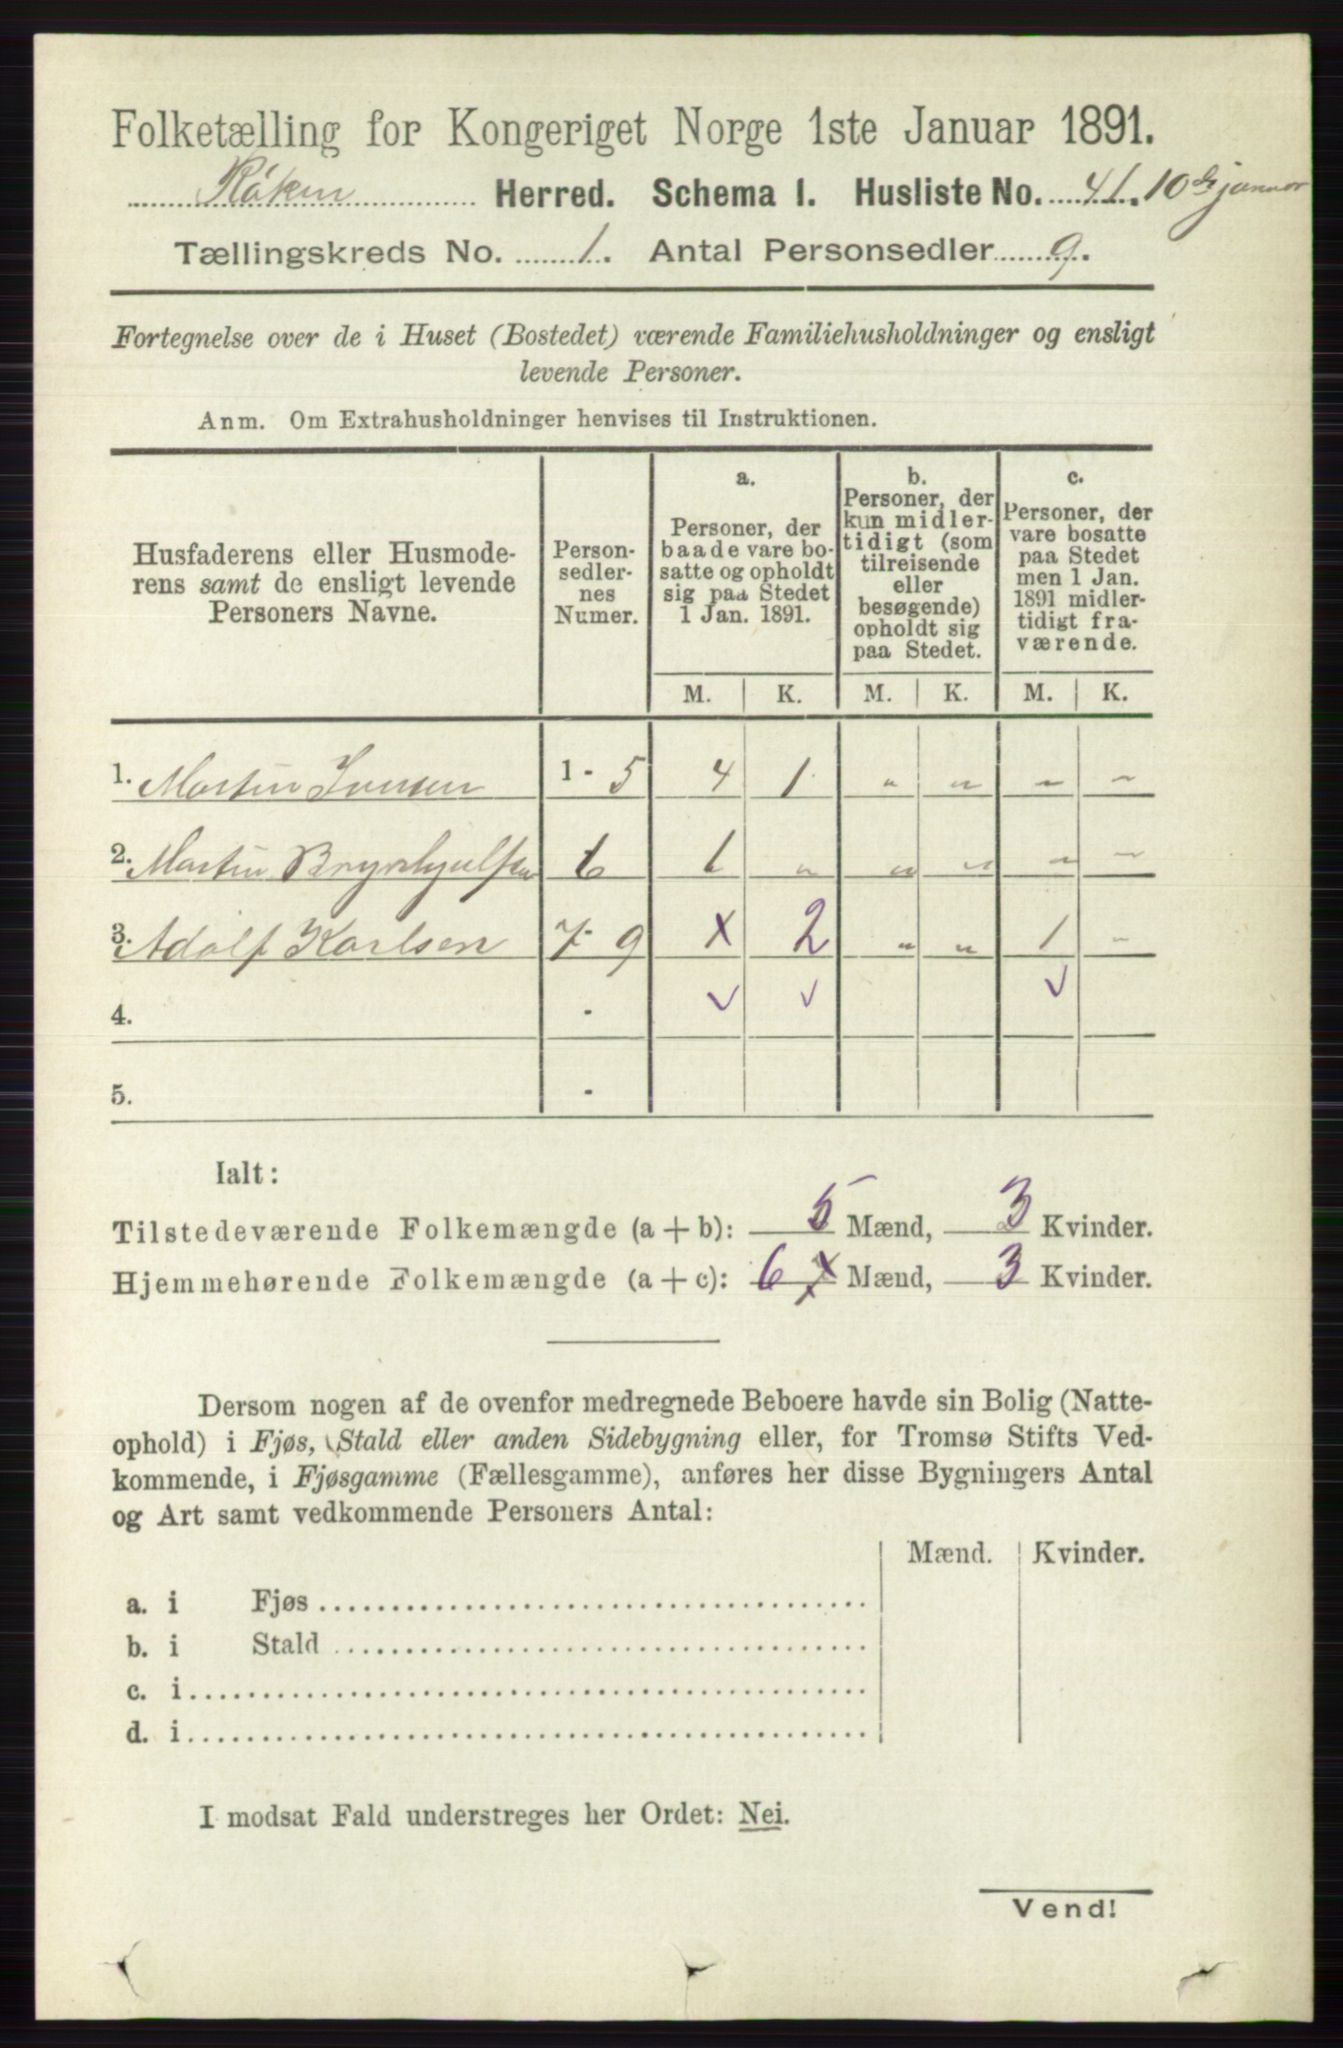 Folketælling for Kongeriget Norge 1ste Januar 1891.
Röken Herred. Schema I. Husliste No. 41. 10de januar
Tællingskreds No. 1. Antal Personsedler 9.
Fortegnelse over de i Huset (Bostedet) værende Familiehusholdninger og ensligt
levende Personer.
Anm. Om Extrahusholdninger henvises til Instruktionen.
Husfaderens eller Husmode-
rens samt de ensligt levende
Personers Navne.
Person-
sedler-
nes
Numer.
a.
Personer, der
baade vare bo-
satte og opholdt
sig paa Stedet
1 Jan. 1891.
b.
Personer, der
kun midler-
tidigt (som
tilreisende
eller
besøgende)
opholdt sig
paa Stedet.
c.
Personer, der
vare bosatte
paa Stedet
men 1 Jan.
1891 midler-
tidigt fra-
værende.
M. K. M. K. M. K.
1. Martin Iversen 1 - 5 4 1 „ „ „ „
2. Martin Brynhyulfsen 6 1 „ „ „ „ „
3. Adolf Karlsen 7 - 9 x 2 „ „ 1 „
4. - ✓ ✓ ✓
5. -
Ialt:
Tilstedeværende Folkemængde (a + b): 5 Mænd, 3 Kvinder.
Hjemmehørende Folkemængde (a + c): 6 Mænd, 3 Kvinder.
Dersom nogen af de ovenfor medregnede Beboere havde sin Bolig (Natte-
ophold) i Fjøs, Stald eller anden Sidebygning eller, for Tromsø Stifts Ved-
kommende, i Fjøsgamme (Fællesgamme), anføres her disse Bygningers Antal
og Art samt vedkommende Personers Antal:
Mænd. Kvinder.
a. i Fjøs
b. i Stald
c. i
d. i
I modsat Fald understreges her Ordet: Nei.
Vend!